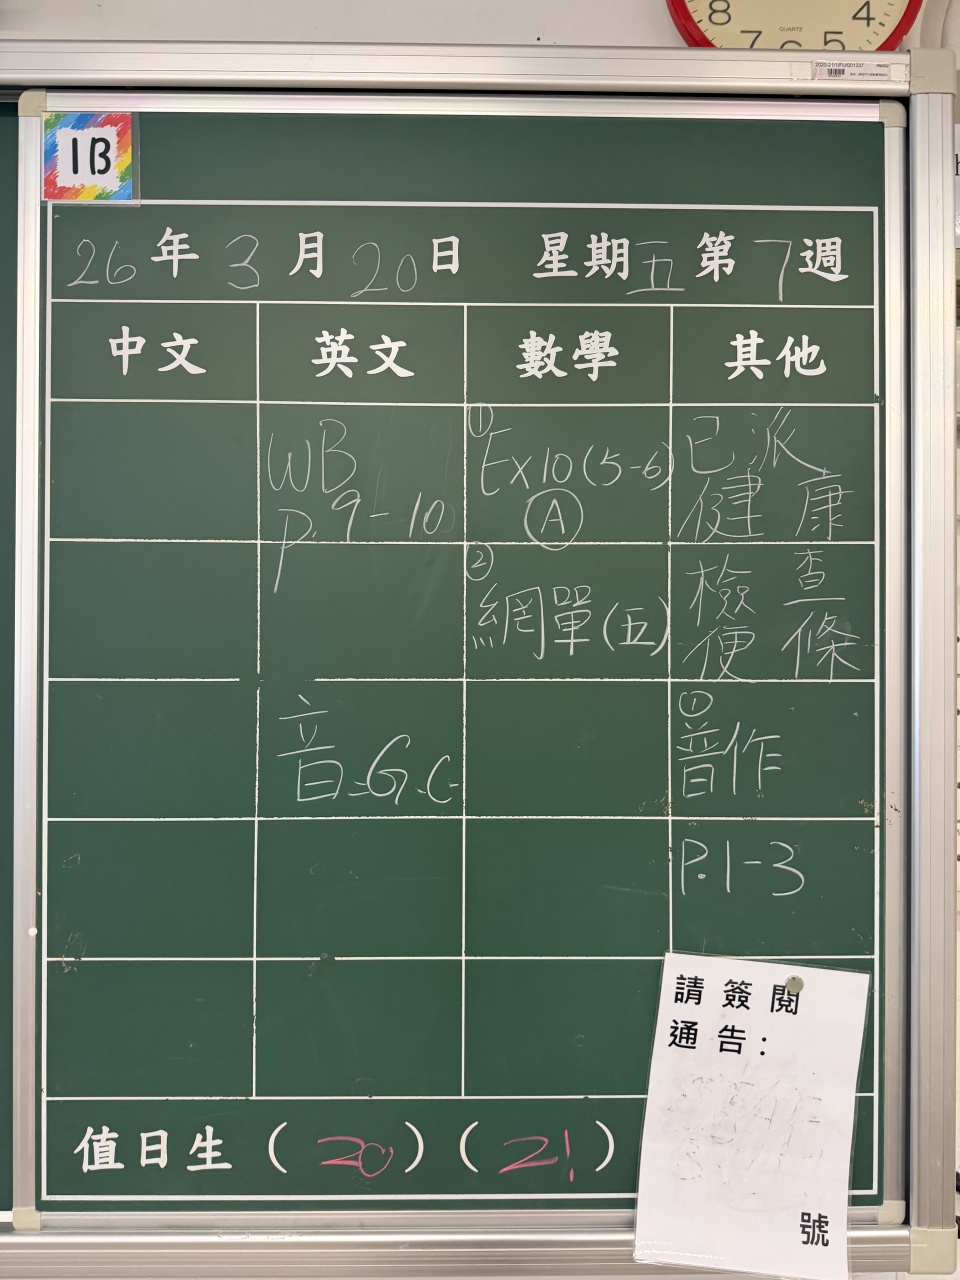 8 4
7 6 5
QUARTZ
1B
26年3月20日 星期五第7週
中文 英文 數學 其他
WB
P.9-10
音=G.C.
①
Ex10(5-6)
Ⓐ
②
網單(五)
已派
健康
檢查
便條
①
普作
P.1-3
請簽閱
通告:
號
值日生(20)(21)